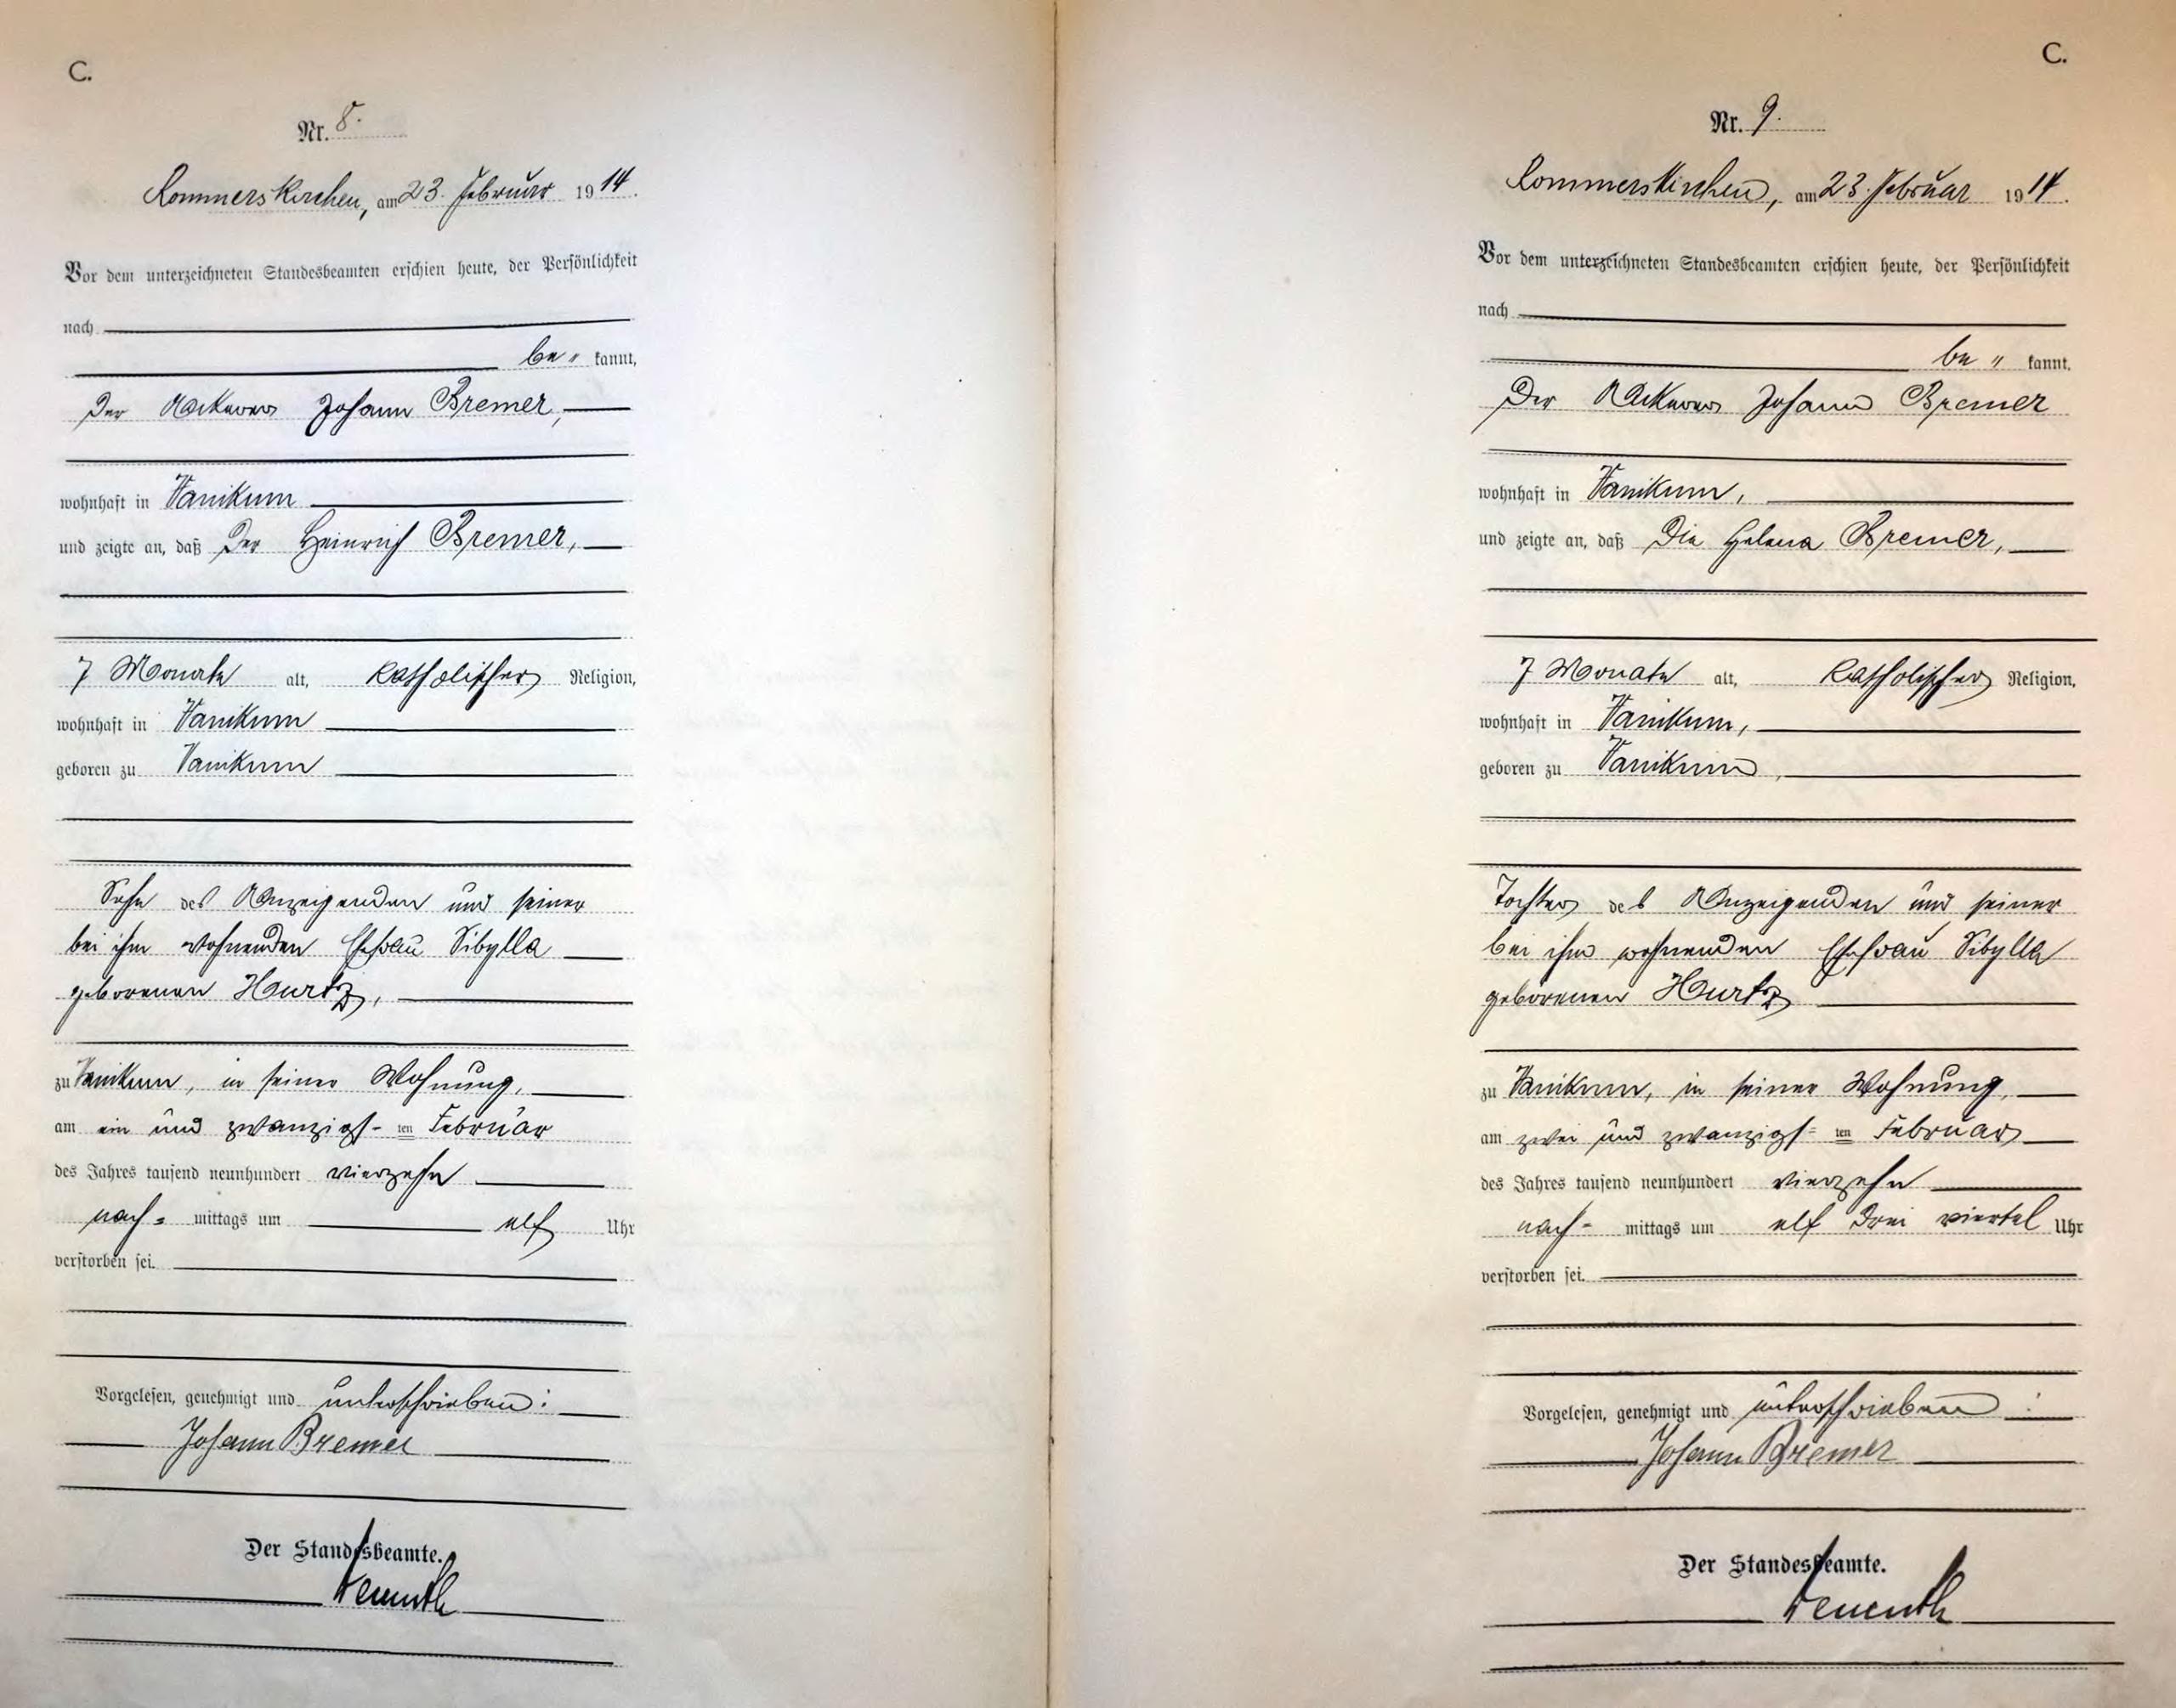 C.
Nr. 8.
Rommerskirchen, am 23. Februar 1914.
Vor dem unterzeichneten Standesbeamten erschien heute, der Persönlichkeit
nach
be " kannt,
Der Ackerer Johann Bremer,
wohnhaft in Vanikum
und zeigte an, daß Der Heinrich Bremer,
7 Monate alt, katholischer Religion,
wohnhaft in Vanikum
geboren zu Vanikum
Sohn des Anzeigenden und seiner
bei ihm wohnenden Ehefrau Sibylla
geborenen Hurtz,
zu Vanikum, in seiner Wohnung,
am ein und zwanzigst- ten Februar
des Jahres tausend neunhundert vierzehn
nach= mittags um elf Uhr
verstorben sei.
Vorgelesen, genehmigt und unterschrieben:
Johann Bremer
Der Standesbeamte.
C.
Nr. 9.
Rommerskirchen, am 23. Februar 1914.
Vor dem unterzeichneten Standesbeamten erschien heute, der Persönlichkeit
nach
be " kannt,
Der Ackerer Johann Bremer
wohnhaft in Vanikum,
und zeigte an, daß Die Helena Bremer,
7 Monate alt, katholischer Religion,
wohnhaft in Vanikum,
geboren zu Vanikum,
Tochter des Anzeigenden und seiner
bei ihm wohnenden Ehefrau Sibylla
geborenen Hurtz
zu Vanikum, in seiner Wohnung,
am zwei und zwanzigst= ten Februar
des Jahres tausend neunhundert vierzehn
nach= mittags um elf drei viertel Uhr
verstorben sei.
Vorgelesen, genehmigt und unterschrieben :
Johann Bremer
Der Standesbeamte.